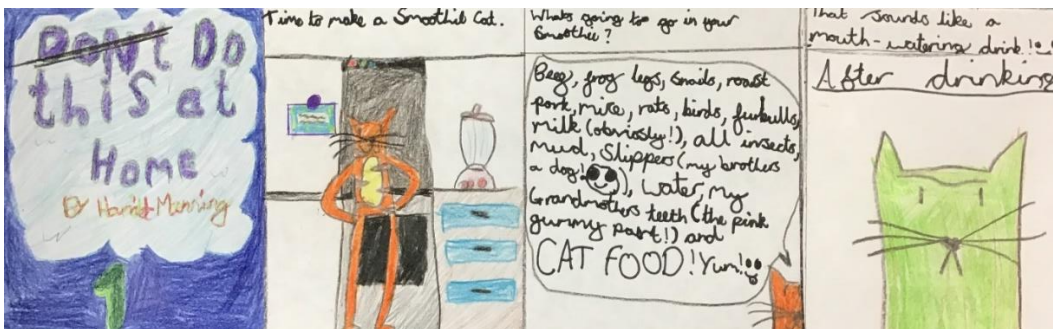 Don't Do
this at
Home
By Harriet Manning
1
Time to make a Smoothie Cat.
Whats going too go in your
Smoothie?
Beef, frog legs, snails, roast
pork, mice, rats, birds, furbulls,
milk (obviously!), all insects,
mud, Slippers (my brothers
a dog!), water, my
Grandmothers teeth (the pink
gummy part!) and
CAT FOOD! Yum!
That sounds like a
mouth-watering drink!
After drinking